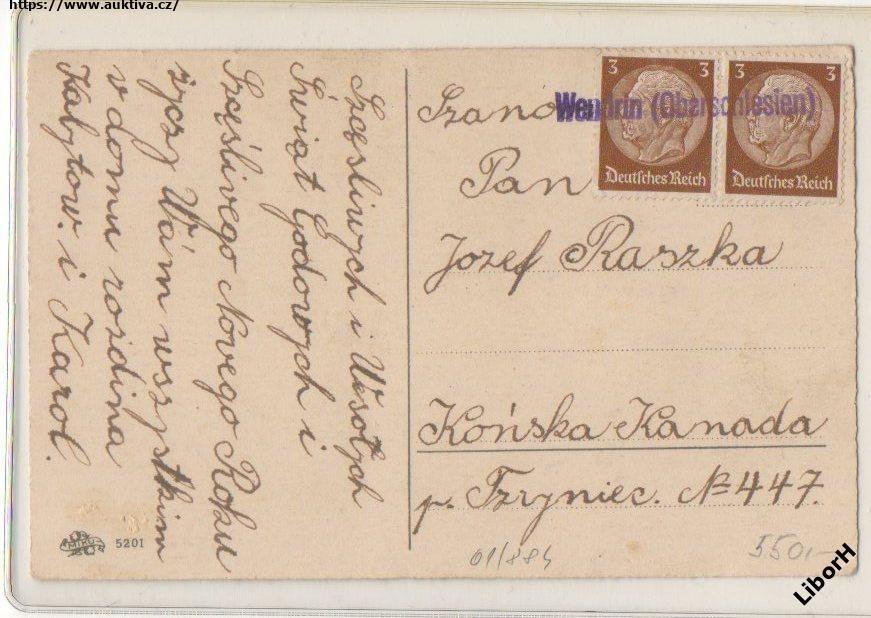 https://www.auktiva.cz/
Szczęśliwych i Wesołych
Świąt Godowych i
Szczęślivego Novego Roku
życzy Wám wszystkim
v domu rozdina
i Karol.
MIKU
5201
Wendrin (Oberschlesien)
3 3
Deutsches Reich
3 3
Deutsches Reich
Szano
Pan
Jozef Raszka
Końska Kanada
p. Trzyniec. № 447.
01/884
550,-
LiborH